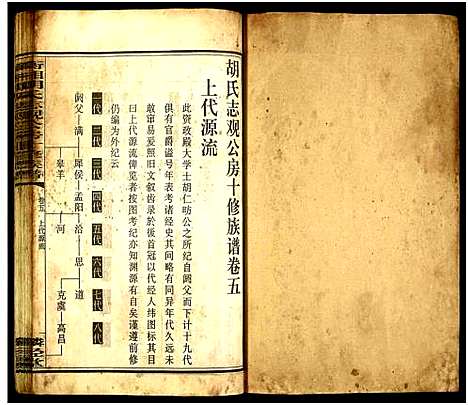 胡氏志观公房十修族谱卷五
上代源流
此资政殿大学士胡仁昉公之所纪自阏父而下计十九代
俱有官爵谥号年表考诸经史其间略有同异年代久远未
敢窜易爰照旧文叙齿录于后兹首冠以代经人纬图标其
曰上代源流俾览者按图考纪亦知渊源有自矣谨遵前修
仍编为外纪云
一代 二代 三代 四代 五代 六代 七代 八代
阏父 满 犀侯 孟阳 沿 思 道
皋羊 河
克虞 高昌
卷五 上代源流